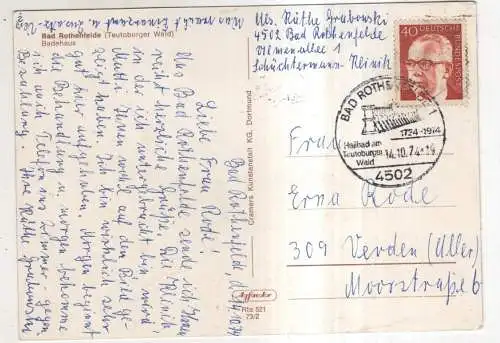 Bad Rothenfelde (Teutoburger Wald)
Badehaus
Bad Rothenfelde, d. 14.10.74
Liebe Frau Rode!
Aus Bad Rothenfelde sende ich Ihnen
recht herzliche Grüße. Die Klinik
in der ich untergebracht bin wird
Mutti Ihnen wohl auf dem Bild ge-
zeigt haben. Ich bin wirklich sehr
gut hier aufgehoben. Morgen beginnt
die Behandlung u. morgen bekomme
ich auch Telefon ins Zimmer - gegen
Bezahlung. Ihre Käthe Grabowski
Cramers Kunstanstalt KG, Dortmund
Rfe 521
73/2
Abs. Käthe Grabowski
4502 Bad Rothenfelde
Ulmenallee 1
Schüchtermann-Klinik
40
DEUTSCHE BUNDESPOST
BAD ROTHENFELDE
1724-1974
Heilbad am
Teutoburger
Wald
14.10.74-19
4502
Frau
Erna Rode
309 Verden (Aller)
Moorstraße 6